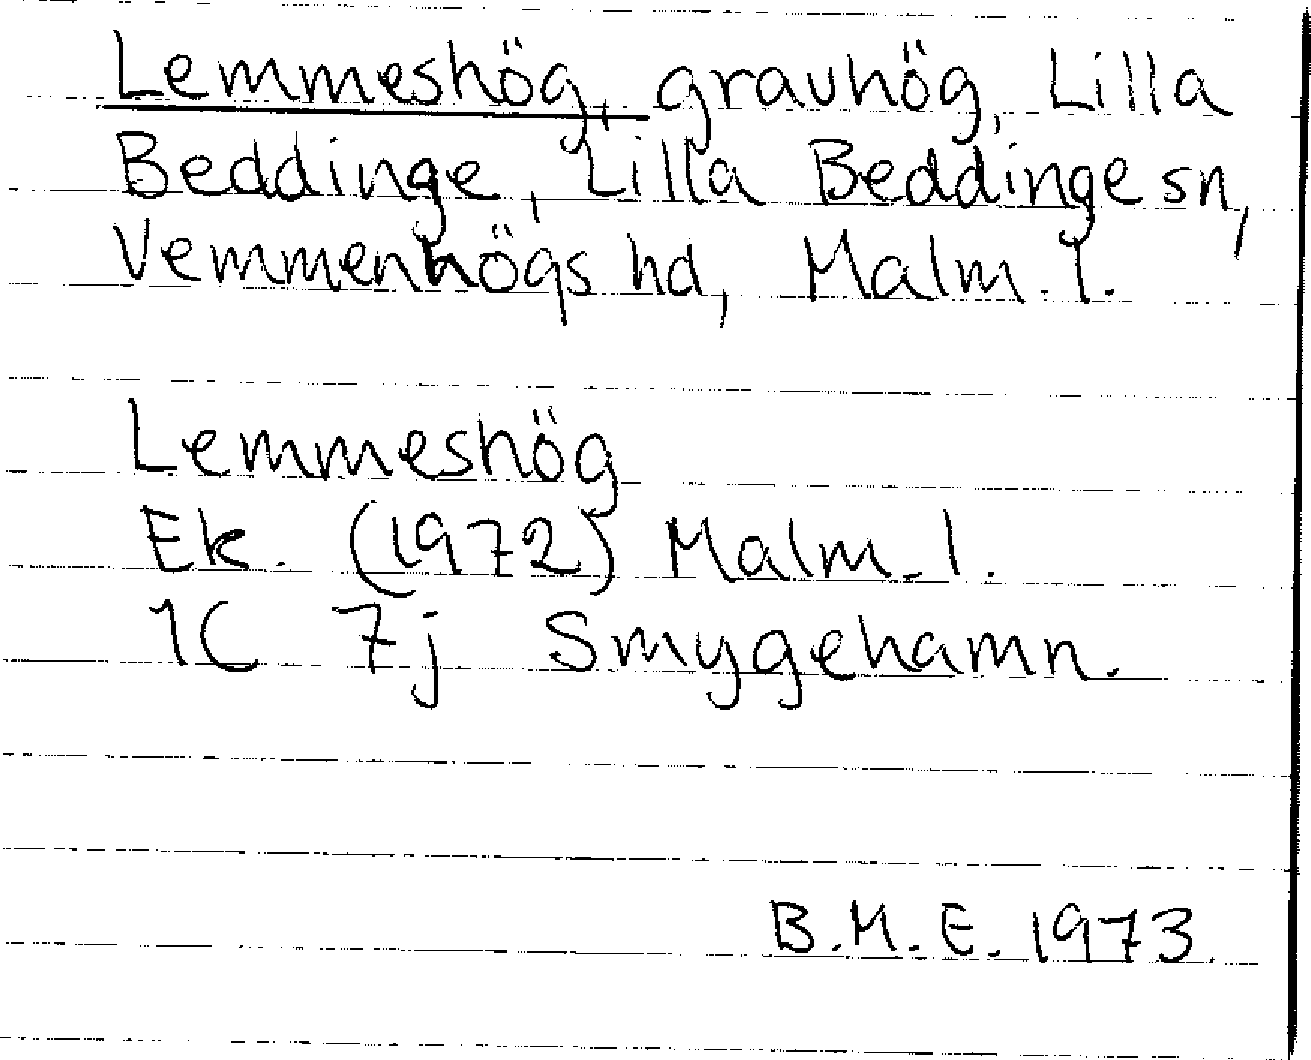 Lemmeshög, gravhög, Lilla
Beddinge, Lilla Beddinge sn,
Vemmenhögs hd, Malm. l.
Lemmeshög
Ek. (1972) Malm. l.
1C 7j Smygehamn.
B.M.E. 1973.